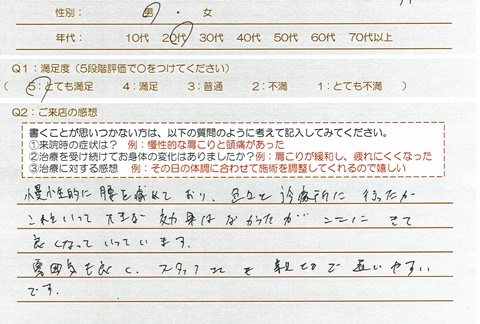 性別： 男 ・ 女
年代： 10代 20代 30代 40代 50代 60代 70代以上
Q1：満足度（5段階評価で○をつけてください）
（ 5：とても満足 4：満足 3：普通 2：不満 1：とても不満 ）
Q2：ご来店の感想
書くことが思いつかない方は、以下の質問のように考えて記入してみてください。
①来院時の症状は？ 例：慢性的な肩こりと頭痛があった
②治療を受け続けてお身体の変化はありましたか？例：肩こりが緩和し、疲れにくくなった
③治療に対する感想 例：その日の体調に合わせて施術を調整してくれるので嬉しい
慢性的に腰を痛めており、 診療所に行ったが
これといって大きな効果はなかったが ここにきて
良くなっていっています。
雰囲気も良く、スタッフ も親切で通いやすい
です。